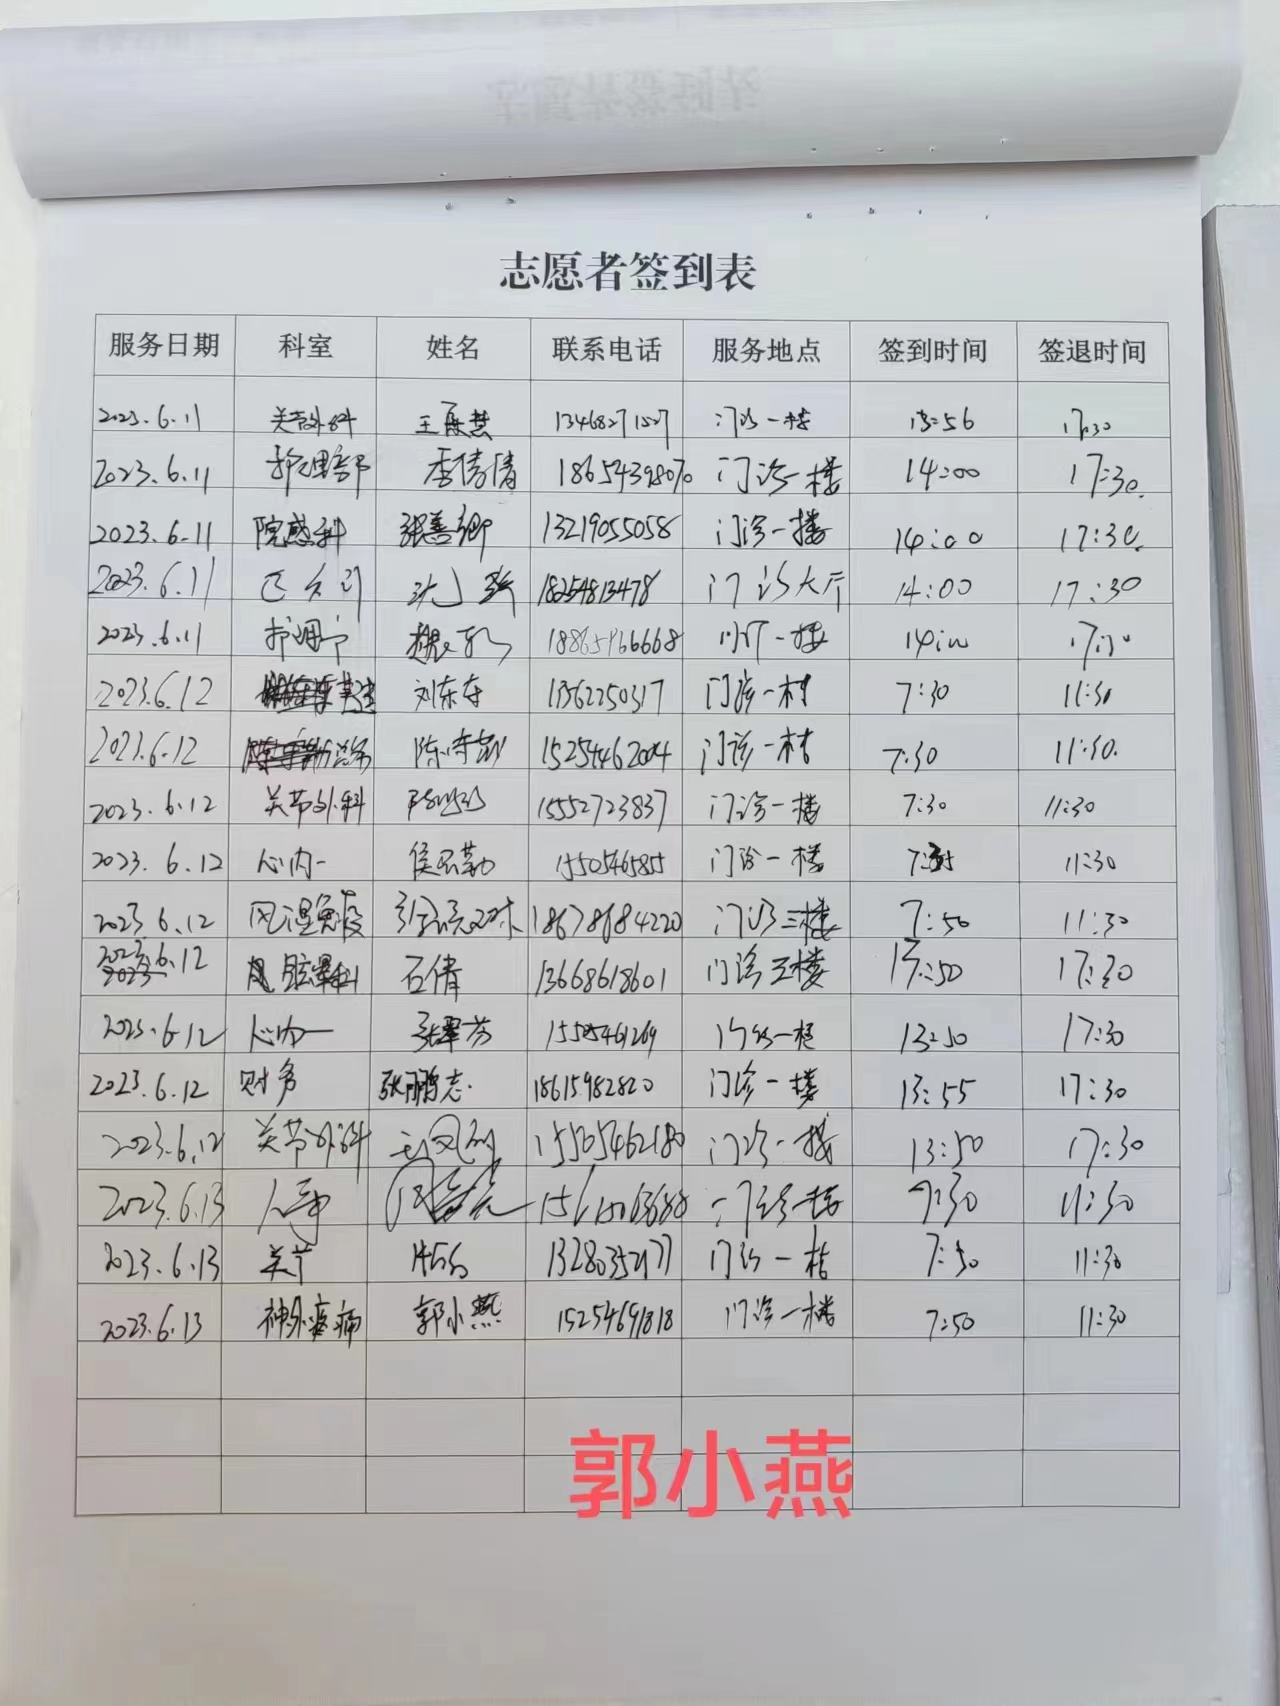 志愿者签到表
服务日期 科室 姓名 联系电话 服务地点 签到时间 签退时间
2023.6.11 关节外科 13468271527 门诊一楼 13:56 17:30
2023.6.11 护理部 李倩倩 18654398070 门诊一楼 14:00 17:30
2023.6.11 院感科 张善卿 13219055058 门诊一楼 14:00 17:30
2023.6.11 18254813478 门诊大厅 14:00 17:30
2023.6.11 一楼 14:00 17:30
2023.6.12 刘东存 13562250317 门诊一楼 7:30 11:30
2023.6.12 门诊一楼 7:30 11:30
2023.6.12 关节外科 15552723837 门诊一楼 7:30 11:30
2023.6.12 心内一 1550546585 门诊一楼 11:30
2023.6.12 风湿免疫 18678684220 门诊三楼 7:50 11:30
2023.6.12 石倩 13668618601 门诊三楼 13:50 17:30
2023.6.12 心内一 张翠芬 门诊一楼 13:50 17:30
2023.6.12 财务 张鹏志 18615982820 门诊一楼 13:55 17:30
2023.6.12 关节外科 15505462180 门诊一楼 13:50 17:30
2023.6.13 人事 门诊一楼 7:30 11:30
2023.6.13 关节 门诊一楼 7:50 11:30
2023.6.13 神外疼痛 郭小燕 15254691818 门诊一楼 7:50 11:30
郭小燕